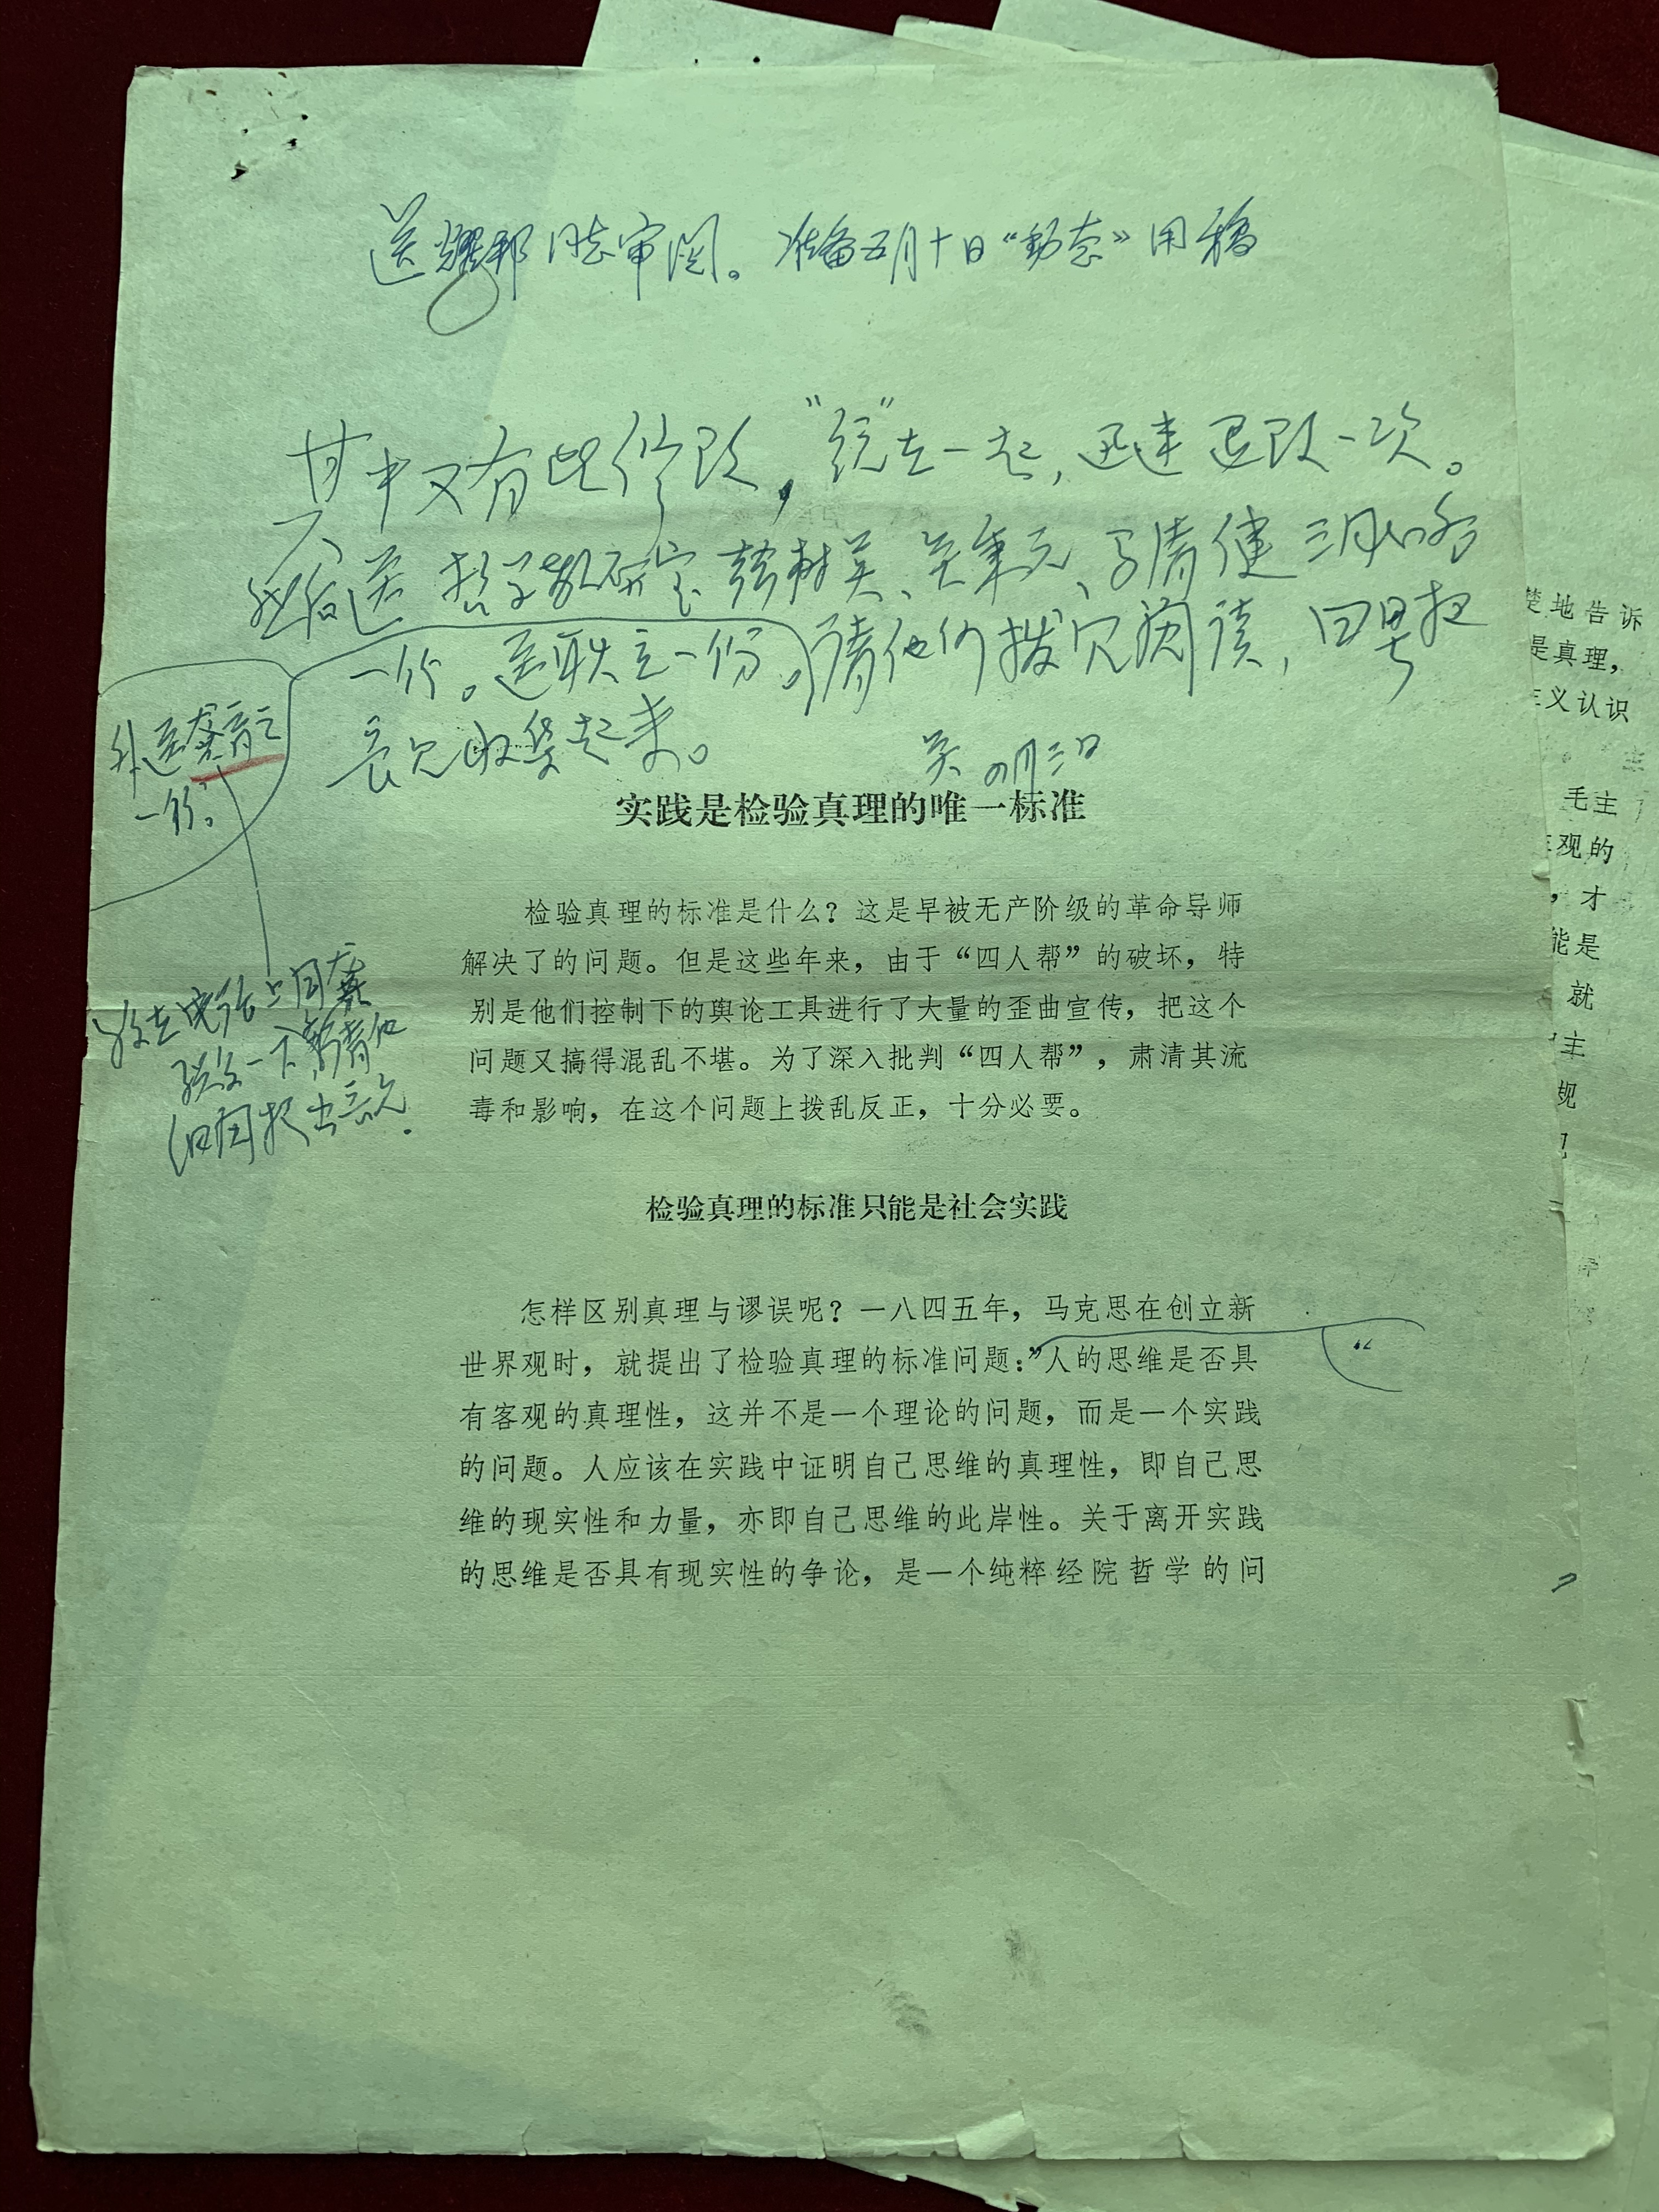 送耀邦同志审阅。准备五月十日“动态”用稿
其中又有些修改，“统”在一起，迅速退改一次。
然后送哲学教研室韩树英、吴秉元、马清健三同志各
一份。送耿立一份。请他们拨冗阅读，四号把
意见收集起来。
吴 四月三日
外送
一份。
实践是检验真理的唯一标准
检验真理的标准是什么？这是早被无产阶级的革命导师
解决了的问题。但是这些年来，由于“四人帮”的破坏，特
别是他们控制下的舆论工具进行了大量的歪曲宣传，把这个
问题又搞得混乱不堪。为了深入批判“四人帮”，肃清其流
毒和影响，在这个问题上拨乱反正，十分必要。
检验真理的标准只能是社会实践
怎样区别真理与谬误呢？一八四五年，马克思在创立新
世界观时，就提出了检验真理的标准问题：”人的思维是否具
“
有客观的真理性，这并不是一个理论的问题，而是一个实践
的问题。人应该在实践中证明自己思维的真理性，即自己思
维的现实性和力量，亦即自己思维的此岸性。关于离开实践
的思维是否具有现实性的争论，是一个纯粹经院哲学的问
楚地告诉
是真理，
主义认识
毛主
观的
，才
能是
就
主
规